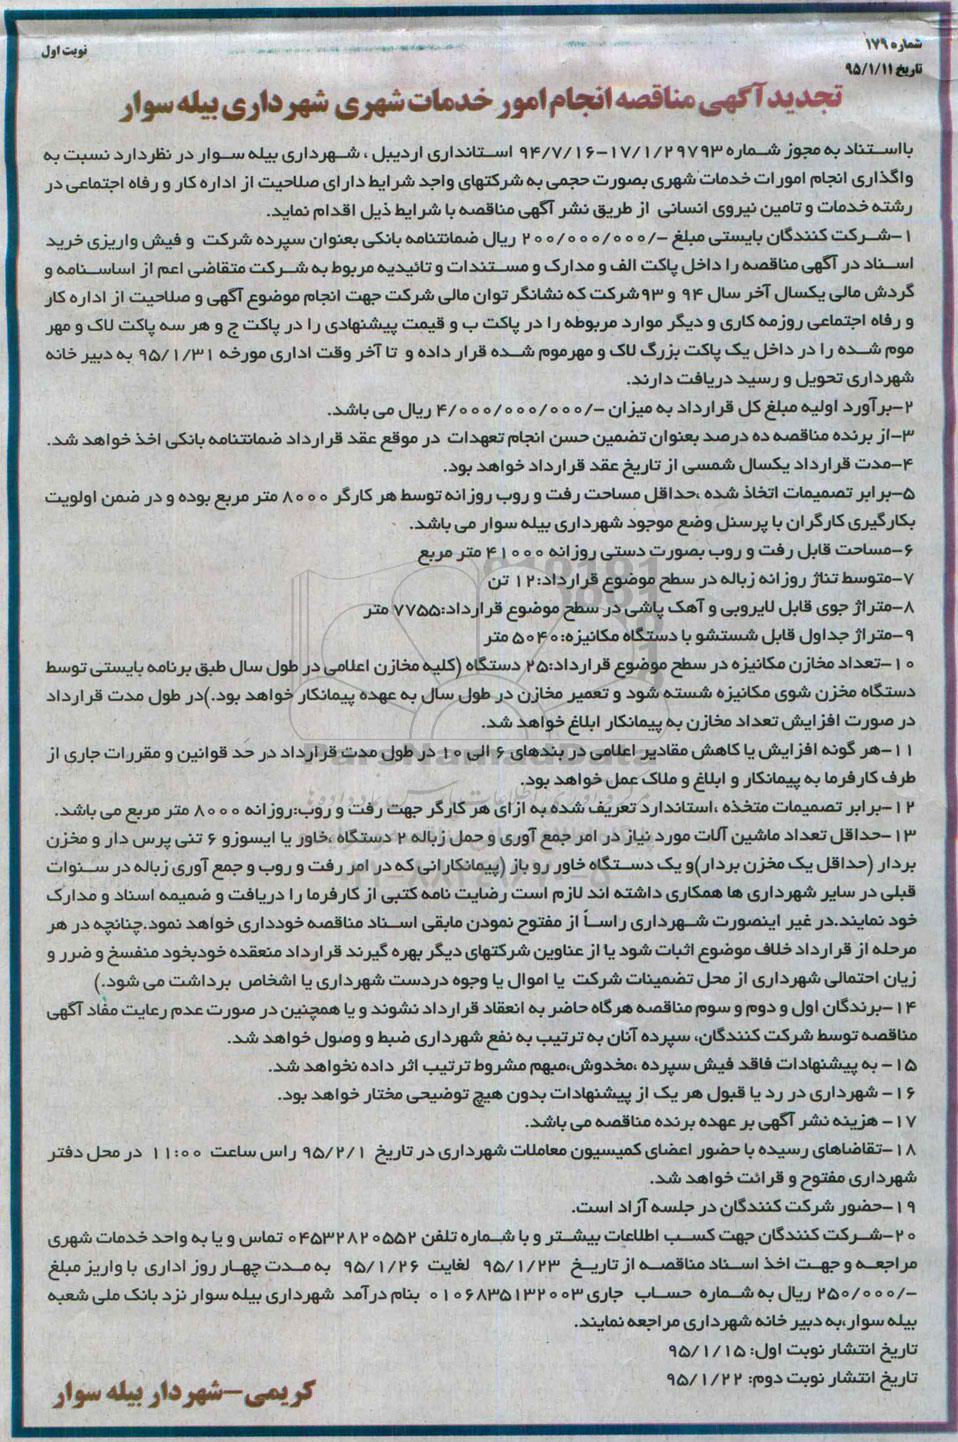 شماره ۱۷۹
نوبت اول
تاریخ ۹۵/۱/۱۱
تجدید آگهی مناقصه انجام امور خدمات شهری شهرداری بیله سوار
بااستناد به مجوز شماره ۱۷/۱/۲۹۷۹۳-۹۴/۷/۱۶ استانداری اردبیل ، شهرداری بیله سوار در نظر دارد نسبت به
واگذاری انجام امورات خدمات شهری بصورت حجمی به شرکتهای واجد شرایط دارای صلاحیت از اداره کار و رفاه اجتماعی در
رشته خدمات و تامین نیروی انسانی از طریق نشر آگهی مناقصه با شرایط ذیل اقدام نماید.
۱-شرکت کنندگان بایستی مبلغ -/۲۰۰/۰۰۰/۰۰۰ ریال ضمانتنامه بانکی بعنوان سپرده شرکت و فیش واریزی خرید
اسناد در آگهی مناقصه را داخل پاکت الف و مدارک و مستندات و تائیدیه مربوط به شرکت متقاضی اعم از اساسنامه و
گردش مالی یکسال آخر سال ۹۴ و ۹۳شرکت که نشانگر توان مالی شرکت جهت انجام موضوع آگهی و صلاحیت از اداره کار
و رفاه اجتماعی روزمه کاری و دیگر موارد مربوطه را در پاکت ب و قیمت پیشنهادی را در پاکت ج و هر سه پاکت لاک و مهر
موم شده را در داخل یک پاکت بزرگ لاک و مهرموم شده قرار داده و تا آخر وقت اداری مورخه ۹۵/۱/۳۱ به دبیر خانه
شهرداری تحویل و رسید دریافت دارند.
۲-برآورد اولیه مبلغ کل قرارداد به میزان -/۴/۰۰۰/۰۰۰/۰۰۰ ریال می باشد.
۳-از برنده مناقصه ده درصد بعنوان تضمین حسن انجام تعهدات در موقع عقد قرارداد ضمانتنامه بانکی اخذ خواهد شد.
۴-مدت قرارداد یکسال شمسی از تاریخ عقد قرارداد خواهد بود.
۵-برابر تصمیمات اتخاذ شده ،حداقل مساحت رفت و روب روزانه توسط هر کارگر ۸۰۰۰ متر مربع بوده و در ضمن اولویت
بکارگیری کارگران با پرسنل وضع موجود شهرداری بیله سوار می باشد.
۶-مساحت قابل رفت و روب بصورت دستی روزانه ۴۱۰۰۰ متر مربع
۷-متوسط تناژ روزانه زباله در سطح موضوع قرارداد:۱۲ تن
۸-متراژ جوی قابل لایروبی و آهک پاشی در سطح موضوع قرارداد:۷۷۵۵ متر
۹-متراژ جداول قابل شستشو با دستگاه مکانیزه:۵۰۴۰ متر
۱۰-تعداد مخازن مکانیزه در سطح موضوع قرارداد:۲۵ دستگاه (کلیه مخازن اعلامی در طول سال طبق برنامه بایستی توسط
دستگاه مخزن شوی مکانیزه شسته شود و تعمیر مخازن در طول سال به عهده پیمانکار خواهد بود.)در طول مدت قرارداد
در صورت افزایش تعداد مخازن به پیمانکار ابلاغ خواهد شد.
۱۱-هر گونه افزایش یا کاهش مقادیر اعلامی در بندهای ۶ الی ۱۰ در طول مدت قرارداد در حد قوانین و مقررات جاری از
طرف کارفرما به پیمانکار و ابلاغ و ملاک عمل خواهد بود.
۱۲-برابر تصمیمات متخذه ،استاندارد تعریف شده به ازای هر کارگر جهت رفت و روب:روزانه ۸۰۰۰ متر مربع می باشد.
۱۳-حداقل تعداد ماشین آلات مورد نیاز در امر جمع آوری و حمل زباله ۲ دستگاه ،خاور یا ایسوزو ۶ تنی پرس دار و مخزن
بردار (حداقل یک مخزن بردار)و یک دستگاه خاور رو باز (پیمانکارانی که در امر رفت و روب و جمع آوری زباله در سنوات
قبلی در سایر شهرداری ها همکاری داشته اند لازم است رضایت نامه کتبی از کارفرما را دریافت و ضمیمه اسناد و مدارک
خود نمایند.در غیر اینصورت شهرداری راساً از مفتوح نمودن مابقی اسناد مناقصه خودداری خواهد نمود.چنانچه در هر
مرحله از قرارداد خلاف موضوع اثبات شود یا از عناوین شرکتهای دیگر بهره گیرند قرارداد منعقده خودبخود منفسخ و ضرر و
زیان احتمالی شهرداری از محل تضمینات شرکت یا اموال یا وجوه دردست شهرداری یا اشخاص برداشت می شود.)
۱۴-برندگان اول و دوم و سوم مناقصه هرگاه حاضر به انعقاد قرارداد نشوند و یا همچنین در صورت عدم رعایت مفاد آگهی
مناقصه توسط شرکت کنندگان، سپرده آنان به ترتیب به نفع شهرداری ضبط و وصول خواهد شد.
۱۵- به پیشنهادات فاقد فیش سپرده ،مخدوش،مبهم مشروط ترتیب اثر داده نخواهد شد.
۱۶- شهرداری در رد یا قبول هر یک از پیشنهادات بدون هیچ توضیحی مختار خواهد بود.
۱۷- هزینه نشر آگهی بر عهده برنده مناقصه می باشد.
۱۸-تقاضاهای رسیده با حضور اعضای کمیسیون معاملات شهرداری در تاریخ ۹۵/۲/۱ راس ساعت ۱۱:۰۰ در محل دفتر
شهرداری مفتوح و قرائت خواهد شد.
۱۹-حضور شرکت کنندگان در جلسه آزاد است.
۲۰-شرکت کنندگان جهت کسب اطلاعات بیشتر و با شماره تلفن ۰۴۵۳۲۸۲۰۵۵۲ تماس و یا به واحد خدمات شهری
مراجعه و جهت اخذ اسناد مناقصه از تاریخ ۹۵/۱/۲۳ لغایت ۹۵/۱/۲۶ به مدت چهار روز اداری با واریز مبلغ
-/۲۵۰/۰۰۰ ریال به شماره حساب جاری ۰۱۰۶۸۳۵۱۳۲۰۰۳ بنام درآمد شهرداری بیله سوار نزد بانک ملی شعبه
بیله سوار،به دبیر خانه شهرداری مراجعه نمایند.
تاریخ انتشار نوبت اول: ۹۵/۱/۱۵
تاریخ انتشار نوبت دوم: ۹۵/۱/۲۲
کریمی-شهردار بیله سوار